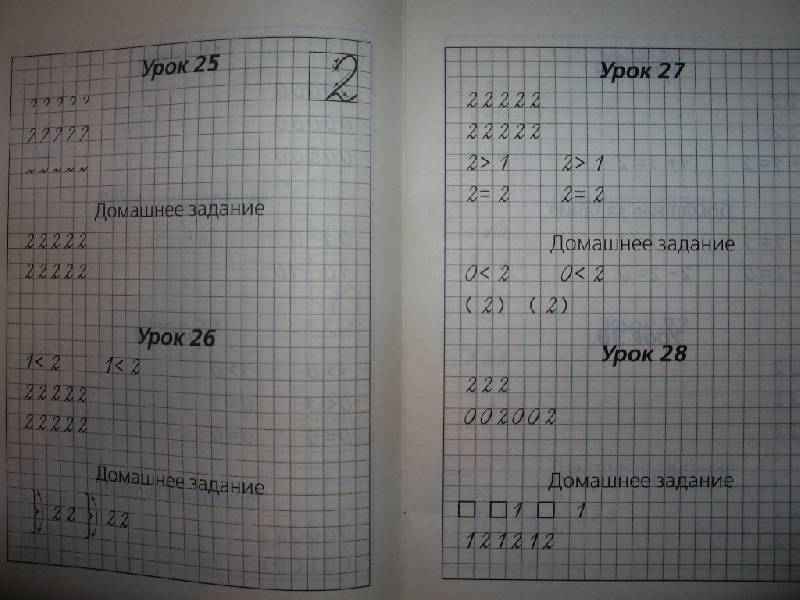 Урок 25
2
2 2 2 2 2
2 2 2 2 2
Домашнее задание
2 2 2 2 2
2 2 2 2 2
Урок 26
1 < 2 1 < 2
2 2 2 2 2
2 2 2 2 2
Домашнее задание
} 2 2 } 2 2
Урок 27
2 2 2 2 2
2 2 2 2 2
2 > 1 2 > 1
2 = 2 2 = 2
Домашнее задание
0 < 2 0 < 2
( 2 ) ( 2 )
Урок 28
2 2 2
0 0 2 0 0 2
Домашнее задание
□ □ 1 □ 1
1 2 1 2 1 2